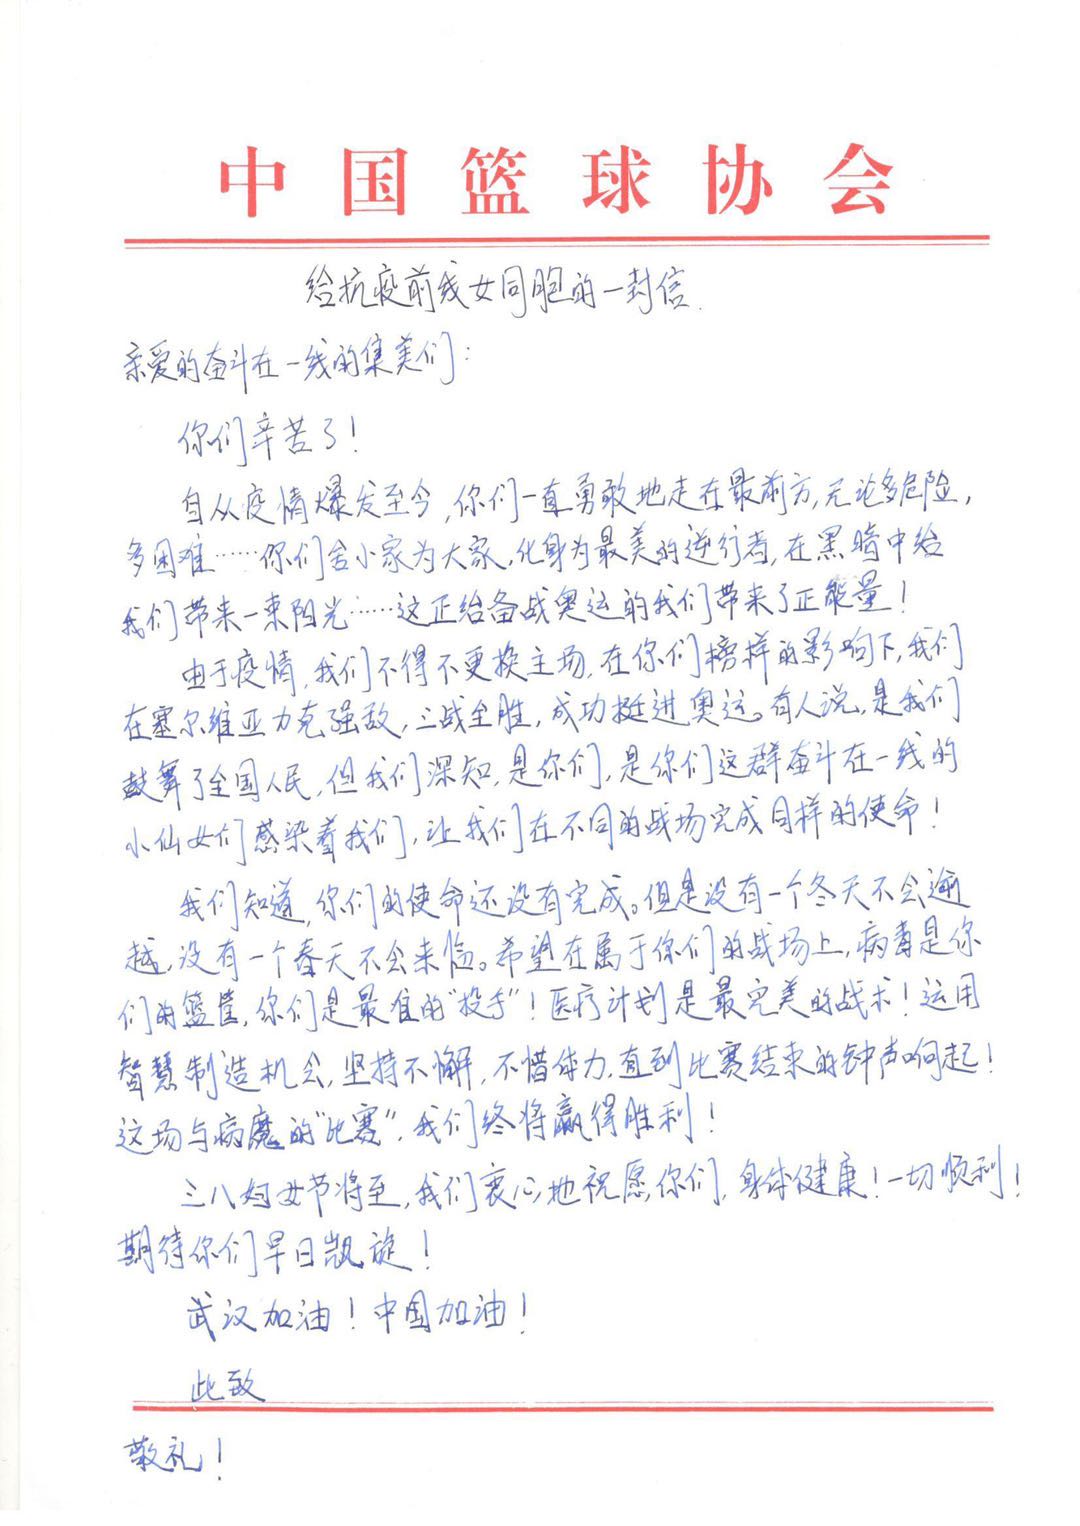 中国篮球协会
给抗疫前线女同胞的一封信.
亲爱的奋斗在一线的集美们：
你们辛苦了！
自从疫情爆发至今，你们一直勇敢地走在最前方，无论多危险，
多困难……你们舍小家为大家，化身为最美的逆行者，在黑暗中给
我们带来一束阳光……这正给备战奥运的我们带来了正能量！
由于疫情，我们不得不更换主场，在你们榜样的影响下，我们
在塞尔维亚力克强敌，三战全胜，成功挺进奥运。有人说，是我们
鼓舞了全国人民，但我们深知，是你们，是你们这群奋斗在一线的
小仙女们感染着我们，让我们在不同的战场完成同样的使命！
我们知道，你们的使命还没有完成。但是没有一个冬天不会逾
越，没有一个春天不会来临。希望在属于你们的战场上，病毒是你
们的篮筐，你们是最准的“投手”！医疗计划是最完美的战术！运用
智慧制造机会，坚持不懈，不惜体力，直到比赛结束的钟声响起！
这场与病魔的“比赛”，我们终将赢得胜利！
三八妇女节将至，我们衷心地祝愿你们，身体健康！一切顺利！
期待你们早日凯旋！
武汉加油！中国加油！
此致
敬礼！